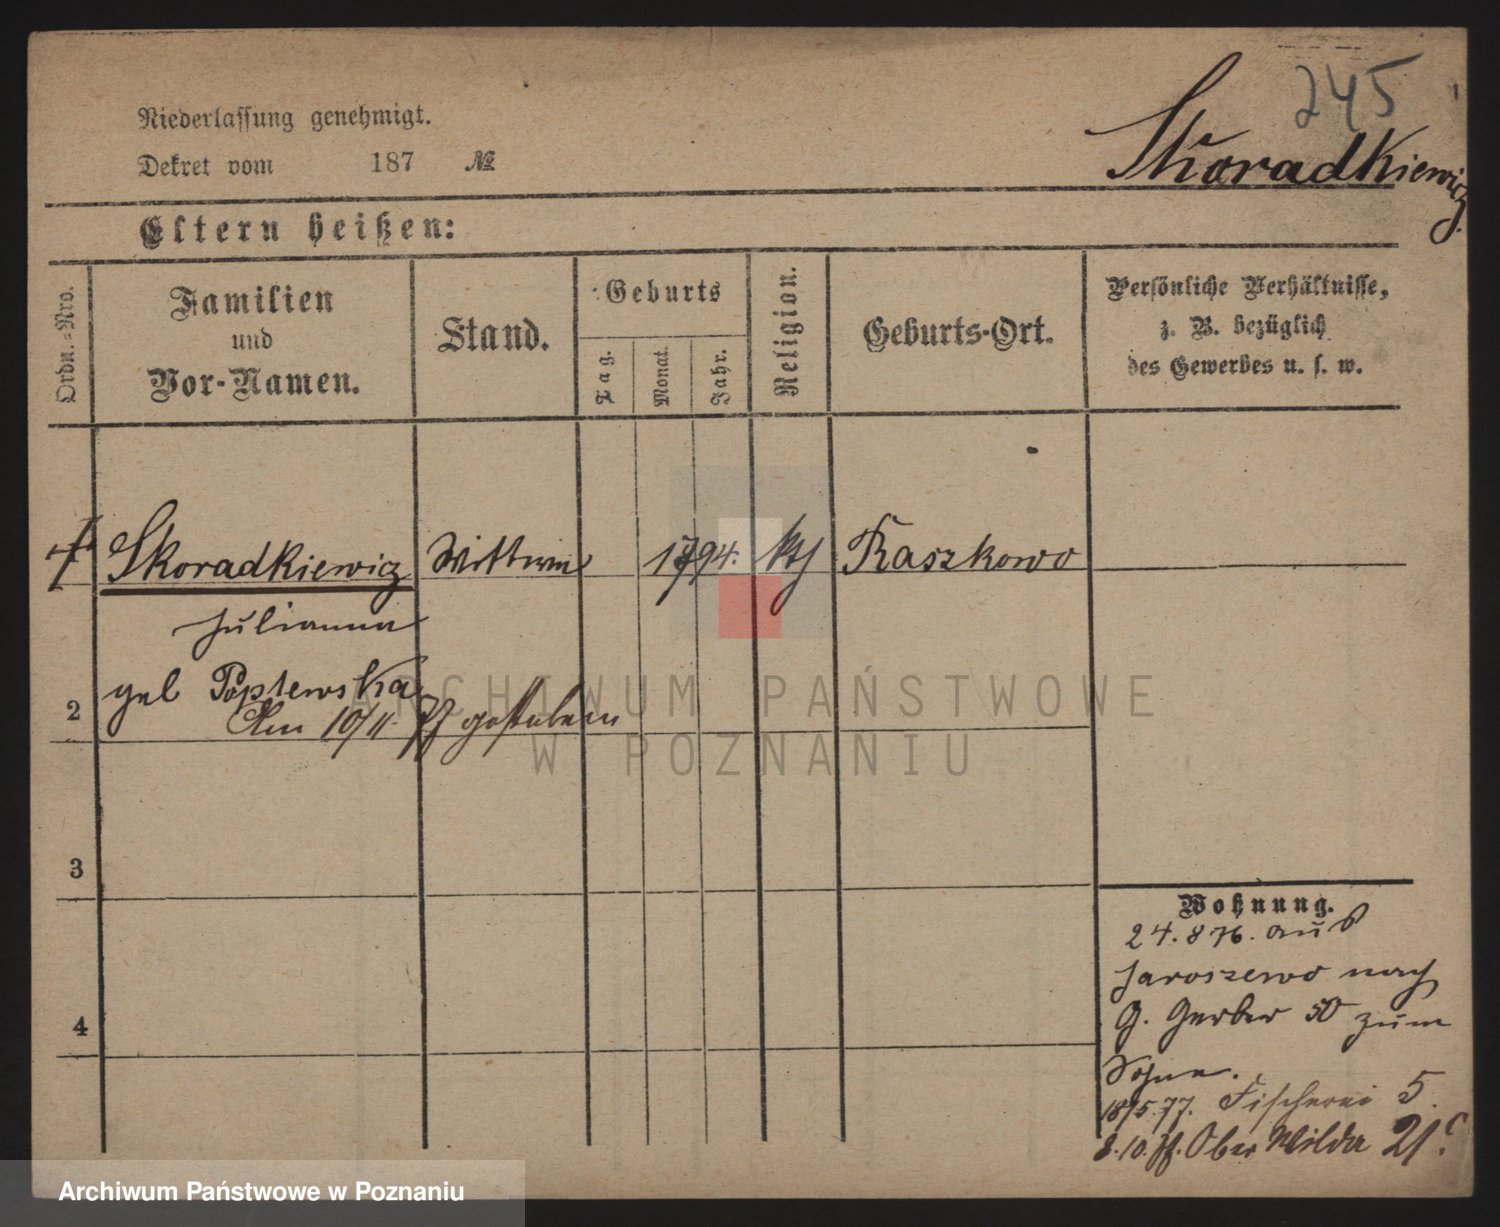 245
Skoradkiewicz
Niederlassung genehmigt.
Dekret vom 187 №
Eltern heißen:
Ordn.-Nro.
Familien
und
Vor-Namen.
Stand.
Geburts
Tag.
Monat.
Jahr.
Religion.
Geburts-Ort.
Persönliche Verhältnisse,
z. B. bezüglich
des Gewerbes u. s. w.
Skoradkiewicz Wittwe 1794. kth Raszkowo
Julianna
geb
Am 10/11. 77 gestorben
2
3
4
Wohnung.
24.8 76. aus
Jaroszewo nach
G. Gerber 50 zum
Sohne.
18/5.77. Fischerei 5.
8.10.77. Ober Wilda 21
ARCHIWUM PAŃSTWOWE
W POZNANIU
Archiwum Państwowe w Poznaniu